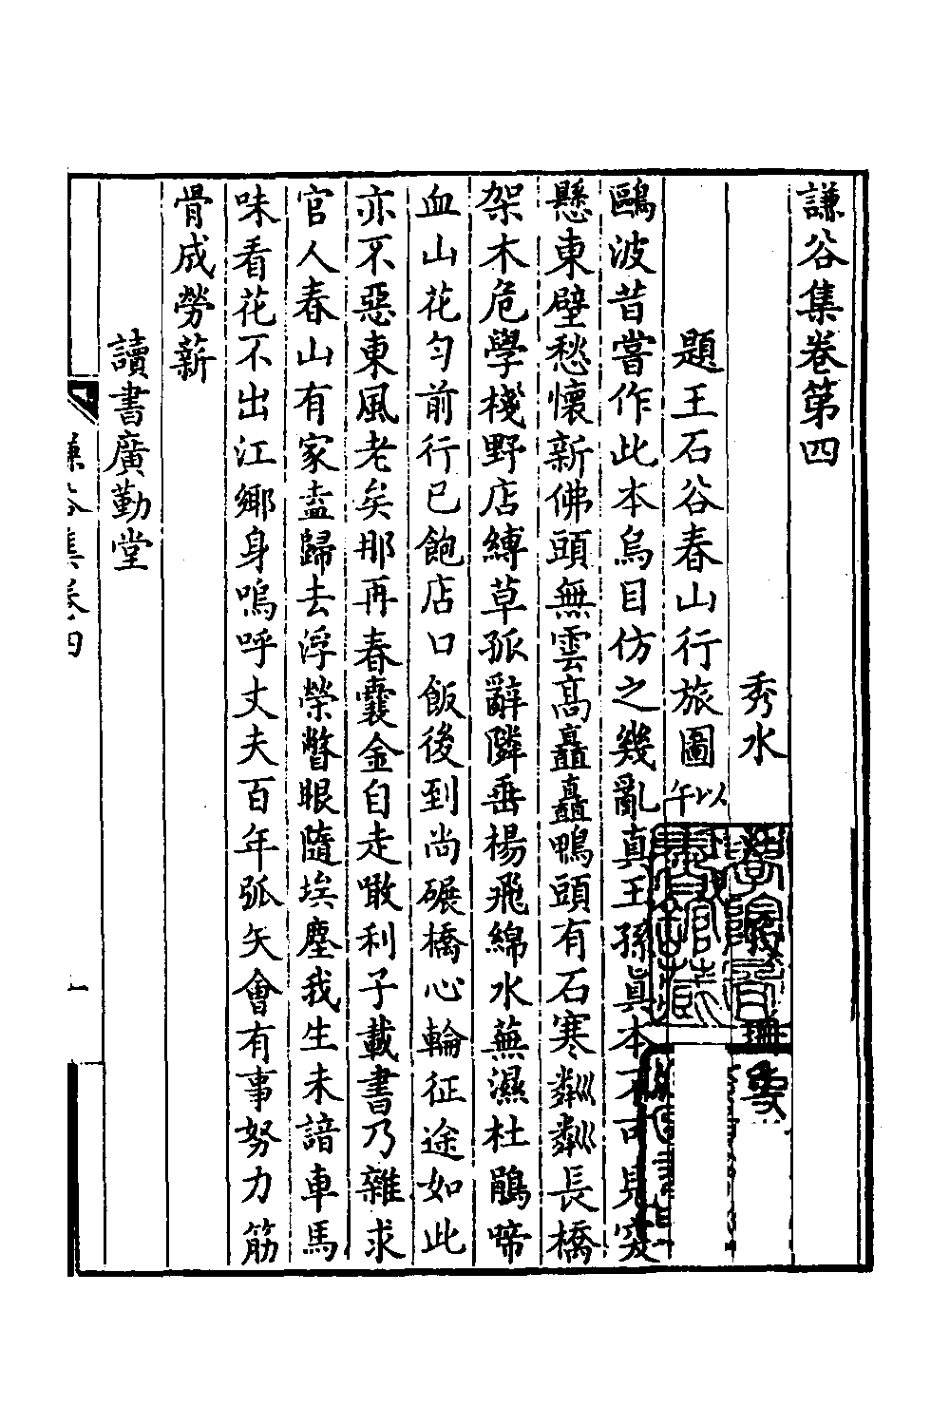 謙谷集卷第四
秀水
題王石谷春山行旅圖以下午
鷗波昔嘗作此本烏目仿之幾亂真王孫眞本不可見突
懸東壁愁懷新佛頭無雲髙矗矗鴨頭有石寒粼粼長橋
架木危學棧野店縛草孤辭隣垂楊飛綿水蕪濕杜鵑啼
血山花勻前行已飽店口飯後到尚碾橋心輪征途如此
亦不惡東風老矣那再春囊金自走噉利子載書乃雜求
官人春山有家盍歸去浮榮瞥眼隨埃塵我生未諳車馬
味看花不出江鄉身嗚呼丈夫百年弧矢會有事努力筋
骨成勞薪
讀書廣勤堂
謙谷集卷四
一